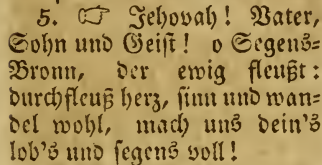 5. ☞ Jehovah! Vater,
Sohn und Geist! o Segens=
Bronn, der ewig fleußt:
durchfleuß herz, sinn und wan=
del wohl, mach uns dein's
lob's und segens voll!